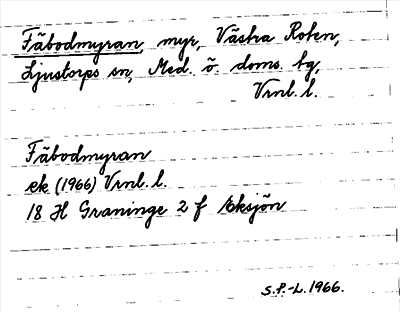 Fäbodmyran, myr, Västra Roten,
Ljustorps sn, Med. ö. doms. tg,
Vrnl. l.
Fäbodmyran
ek (1966) Vrnl. l.
18 H Graninge 2 f Eksjön
S.P.-L. 1966.